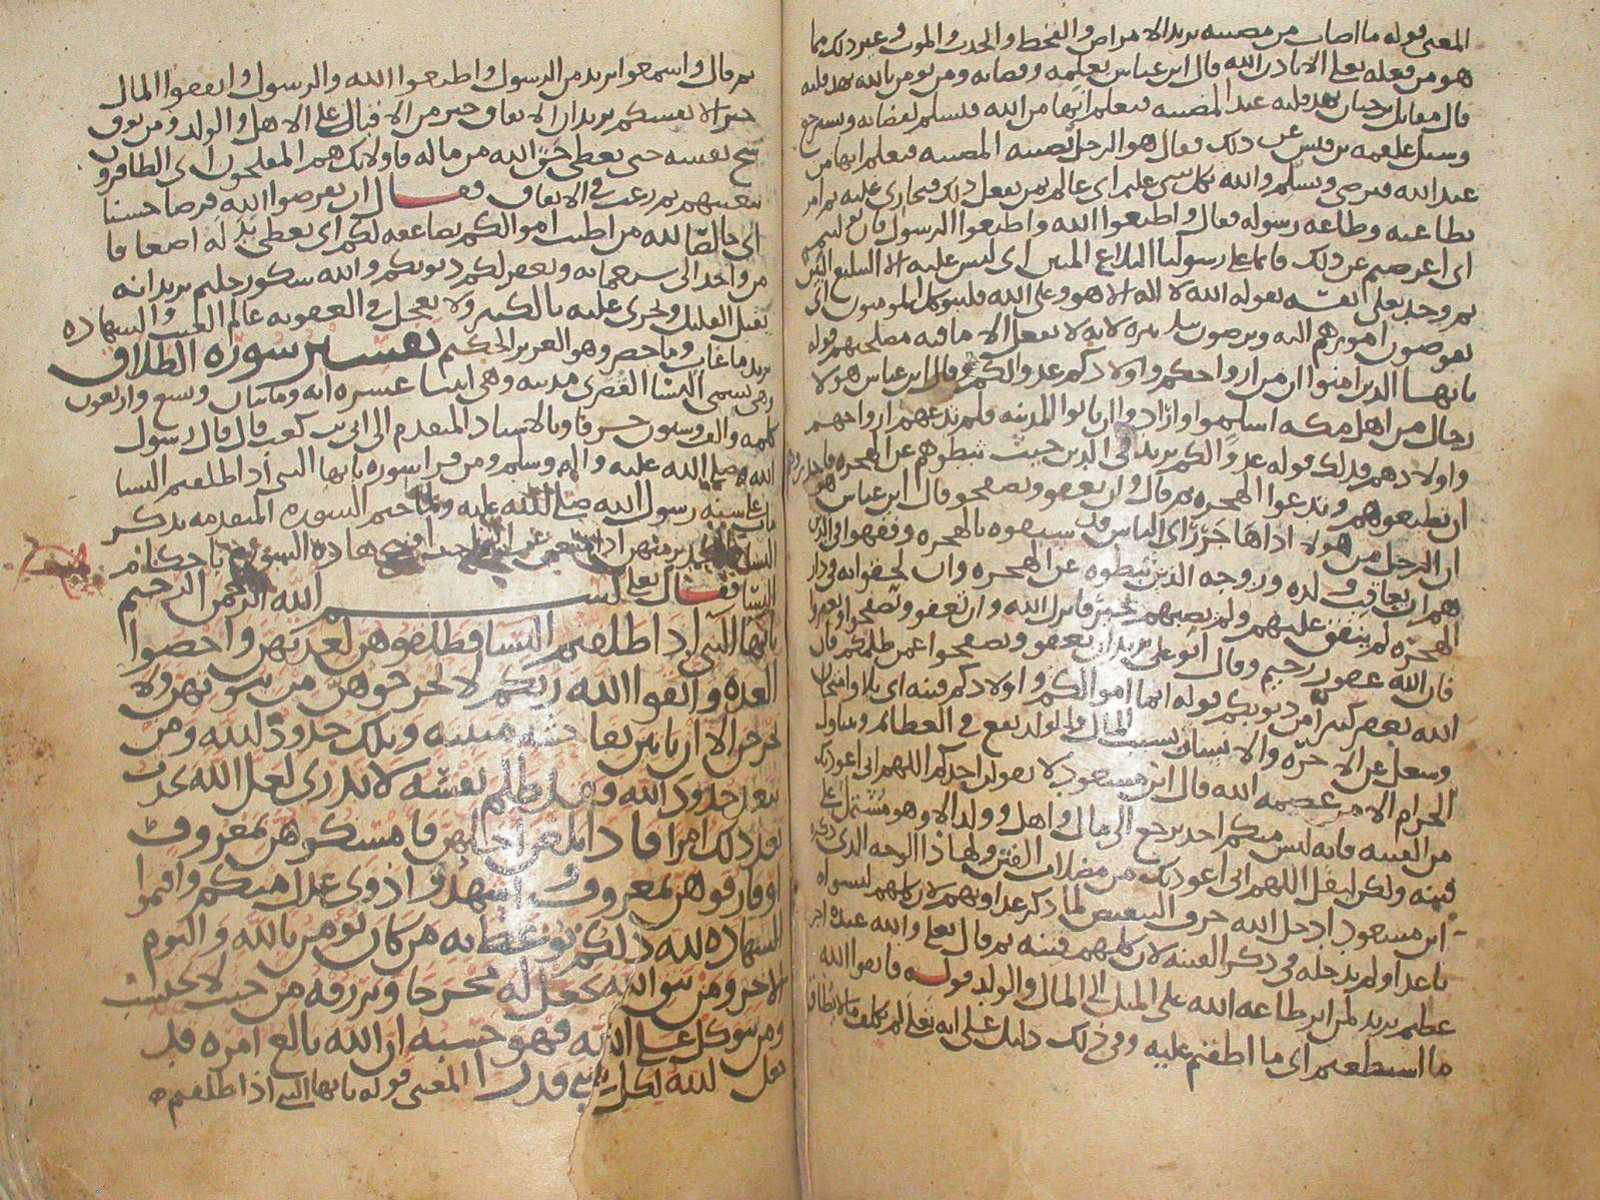 المعنى قوله ما اصاب من مصيبه يريد الامراض والقحط والجدب والموت وغير ذلك مما
هو من فعله تعلى الا باذن الله قال ابن عباس بعلمه وقضايه ومن يومن بالله يهد قلبه
قال مقاتل بن حيان يهد قلبه عند المصيبه فيعلم انها من الله فيسلم لقضايه ويسترجع
وسيل علقمه بن قيس عن ذلك فقال هو الرجل تصيبه المصيبه فيعلم انها من
عند الله فيرضى ويسلم والله بكل شي عليم اى عالم بمن يفعل ذلك فيجازى عليه ثم امر
بطاعته وطاعه رسوله فقال واطيعوا الله واطيعوا الرسول فان توليتم
اى اعرضتم عن ذلك فانما على رسولنا البلاغ المبين اى ليس عليه الا التبليغ البين
ثم وحد تعلى نفسه بقوله الله لا اله الا هو وعلى الله فليتوكل المومنون اى
يفوضون امورهم اليه ويرضون بتدبيره لانه لا يفعل الا ما فيه مصلحتهم قوله
يايها الذين امنوا ان من ازواجكم واولادكم عدوا لكم قال ابن عباس هولا
رجال من اهل مكه اسلموا وارادوا ان ياتوا المدينه فلم يدعهم ازواجهم
واولادهم فذلك قوله عدوا لكم يريد فى الدين حيث ثبطوهم عن الهجره فاحذروهم
ان تطيعوهم وتدعوا الهجره ثم قال وان تعفوا وتصفحوا قال ابن عباس هو
ان الرجل من هولا اذا هاجر راى الناس قد سبقوه بالهجره وفقهوا فى الدين
هم ان يعاقب ولده وزوجه الذين ثبطوه عن الهجره وان لحقوا به فى دار
الهجره لم ينفق عليهم ولم يصبهم بخير فانزل الله وان تعفوا وتصفحوا وتغفروا
فان الله غفور رحيم وقال ابو على يريد ان تعفوا وتصفحوا عمن ظلمكم فان
الله يغفر كثيرا من ذنوبكم قوله انما اموالكم واولادكم فتنه اى بلا وامتحان
وشغل عن الاخره والانسان بسبب المال والولد يقع فى العظائم وتناول
الحرام الا من عصمه الله قال ابن مسعود لا يقولن احدكم اللهم انى اعوذ بك
من الفتنه فانه ليس منكم احد يرجع الى مال واهل وولد الا وهو مشتمل على
فتنه ولكن ليقل اللهم انى اعوذ بك من مضلات الفتن ولهذا الوجه الذى ذكره
ابن مسعود ادخل الله حرف التبعيض لما ذكر عداوتهم لان كلهم ليسوا
باعدا ولم يدخله فى ذكر الفتنه لان كلهم فتنه ثم قال تعلى والله عنده اجر
عظيم يريد لمن اثر طاعه الله على الميل الى المال والولد قوله فاتقوا الله
ما استطعتم اى ما اطقتم عليه وفى ذلك دليل على انه تعلى لم يكلف ما لا يطاق
ثم قال واسمعوا يريد من الرسول واطيعوا الله والرسول وانفقوا المال
خيرا لانفسكم يريد ان الانفاق خير من الاقبال على الاهل والولد ومن يوق
شح نفسه حتى يعطى حق الله من ماله فاولئك هم المفلحون اى الظافرون
ببغيتهم ثم رغب فى الانفاق فقال ان تقرضوا الله قرضا حسنا
اى خالصا لله من اطيب اموالكم يضاعفه لكم اى يعطى بدله اضعافا
من واحد الى سبعمايه ويغفر لكم ذنوبكم والله شكور حليم يريد انه
يقبل القليل ويجزى عليه بالكثير ولا يعجل فى العقوبه عالم الغيب والشهاده
يريد ما غاب وما حضر وهو العزيز الحكيم تفسير سوره الطلاق
وهى تسمى النسا القصرى مدنيه وهى اثنتا عشره ايه ومائتان وتسع واربعون
كلمه والف وستون حرفا وبالاسناد المتقدم الى ابى بن كعب قال قال رسول
الله صلى الله عليه واله وسلم ومن قرا سوره يايها النبى اذا طلقتم النسا
مات على سنه رسول الله صلى الله عليه ولما ختم السوره المتقدمه بذكر
النسا والتحذير منهن افتتح هاذه السوره باحكام
النسا فقال تعلى بسم الله الرحمن الرحيم
يايها النبى اذا طلقتم النسا فطلقوهن لعدتهن واحصوا
العده واتقوا الله ربكم لا تخرجوهن من بيوتهن ولا
يخرجن الا ان ياتين بفاحشه مبينه وتلك حدود الله ومن
يتعد حدود الله فقد ظلم نفسه لا تدرى لعل الله يحدث
بعد ذلك امرا فاذا بلغن اجلهن فامسكوهن بمعروف
او فارقوهن بمعروف واشهدوا ذوى عدل منكم واقيموا
الشهاده لله ذلكم يوعظ به من كان يومن بالله واليوم
الاخر ومن يتق الله يجعل له مخرجا ويرزقه من حيث لا يحتسب
ومن يتوكل على الله فهو حسبه ان الله بالغ امره قد
جعل الله لكل شى قدرا المعنى قوله يايها النبى اذا طلقتم